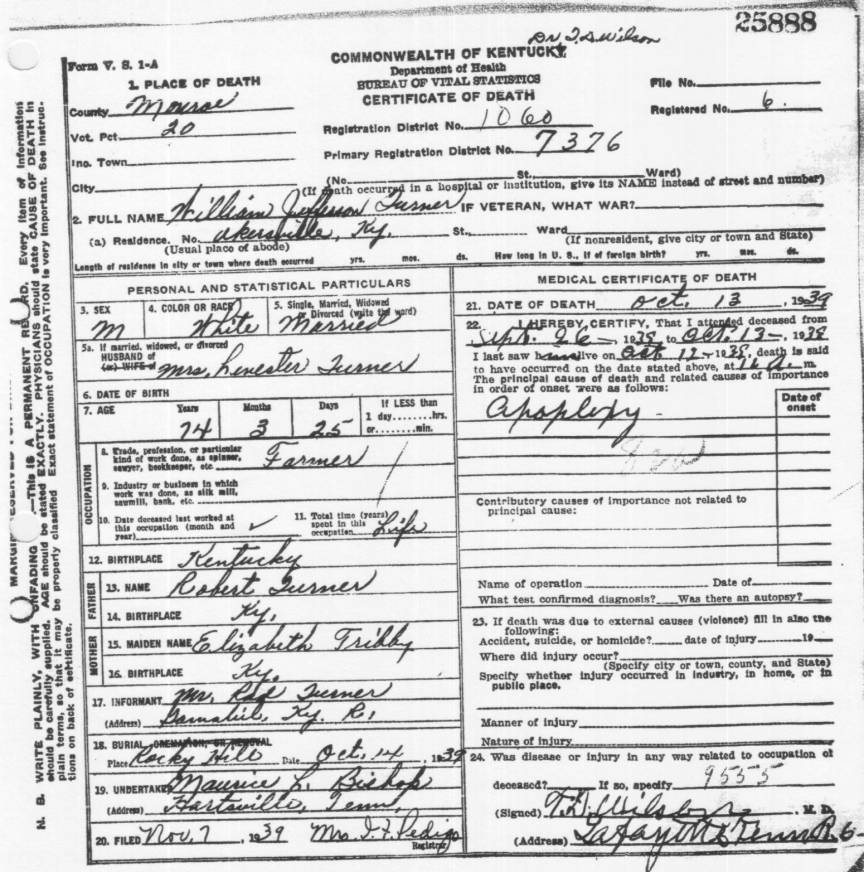 25888
Dr T. D. Wilson
Form V. S. 1-A
COMMONWEALTH OF KENTUCKY
Department of Health
BUREAU OF VITAL STATISTICS
CERTIFICATE OF DEATH
File No.
Registered No. 6.
1. PLACE OF DEATH
County Monroe
Vot. Pct 20
Inc. Town
City
Registration District No. 1060
Primary Registration District No. 7376
(No. St., Ward)
(If death occurred in a hospital or institution, give its NAME instead of street and number)
2. FULL NAME William Jefferson Turner IF VETERAN, WHAT WAR?
(a) Residence. No. Akersville, Ky. St., Ward
(Usual place of abode) (If nonresident, give city or town and State)
Length of residence in city or town where death occurred yrs. mos. ds. How long in U. S., if of foreign birth? yrs. mos. ds.
PERSONAL AND STATISTICAL PARTICULARS
3. SEX M
4. COLOR OR RACE White
5. Single, Married, Widowed or Divorced (write the word) Married
5a. If married, widowed, or divorced
HUSBAND of
(or) WIFE of Mrs. Turner
6. DATE OF BIRTH
7. AGE Years Months Days If LESS than
1 day........hrs.
or........min.
74 3 25
OCCUPATION
8. Trade, profession, or particular
kind of work done, as spinner,
sawyer, bookkeeper, etc. Farmer
9. Industry or business in which
work was done, as silk mill,
sawmill, bank, etc.
10. Date deceased last worked at
this occupation (month and
year)
11. Total time (years)
spent in this
occupation Life
12. BIRTHPLACE Kentucky
FATHER
13. NAME Robert Turner
14. BIRTHPLACE Ky.
MOTHER
15. MAIDEN NAME Elizabeth Tribby
16. BIRTHPLACE Ky.
17. INFORMANT Mr. Turner
(Address) Gamaliel, Ky. R,
18. BURIAL, CREMATION, OR REMOVAL
Place Rocky Hill Date Oct, 14, 1939
19. UNDERTAKER Maurice L. Bishop
(Address) Hartsville, Tenn,
20. FILED Nov, 7, 1939 Mrs. Pedigo
Registrar
MEDICAL CERTIFICATE OF DEATH
21. DATE OF DEATH Oct, 13, 1939
22. I HEREBY CERTIFY, That I attended deceased from
Sept. 26-, 1938, to Oct. 13-, 1938
I last saw alive on Oct 12-, 1938, death is said
to have occurred on the date stated above, at m.
The principal cause of death and related causes of importance
in order of onset were as follows:
Date of
onset
Apoplexy
Contributory causes of importance not related to
principal cause:
Name of operation Date of
What test confirmed diagnosis? Was there an autopsy?
23. If death was due to external causes (violence) fill in also the
following:
Accident, suicide, or homicide? date of injury 19
Where did injury occur?
(Specify city or town, county, and State)
Specify whether injury occurred in industry, in home, or in
public place.
Manner of injury
Nature of injury
24. Was disease or injury in any way related to occupation of
deceased? If so, specify 9555
(Signed) T. D. Wilson, M. D.
(Address) Lafayette Tenn R. 6
N. B. WRITE PLAINLY, WITH UNFADING .—This is A PERMANENT RECORD. Every item of information
should be carefully supplied. AGE should be stated EXACTLY. PHYSICIANS should state CAUSE OF DEATH in
plain terms, so that it may be properly classified. Exact statement of OCCUPATION is very important. See instruc-
tions on back of certificate.